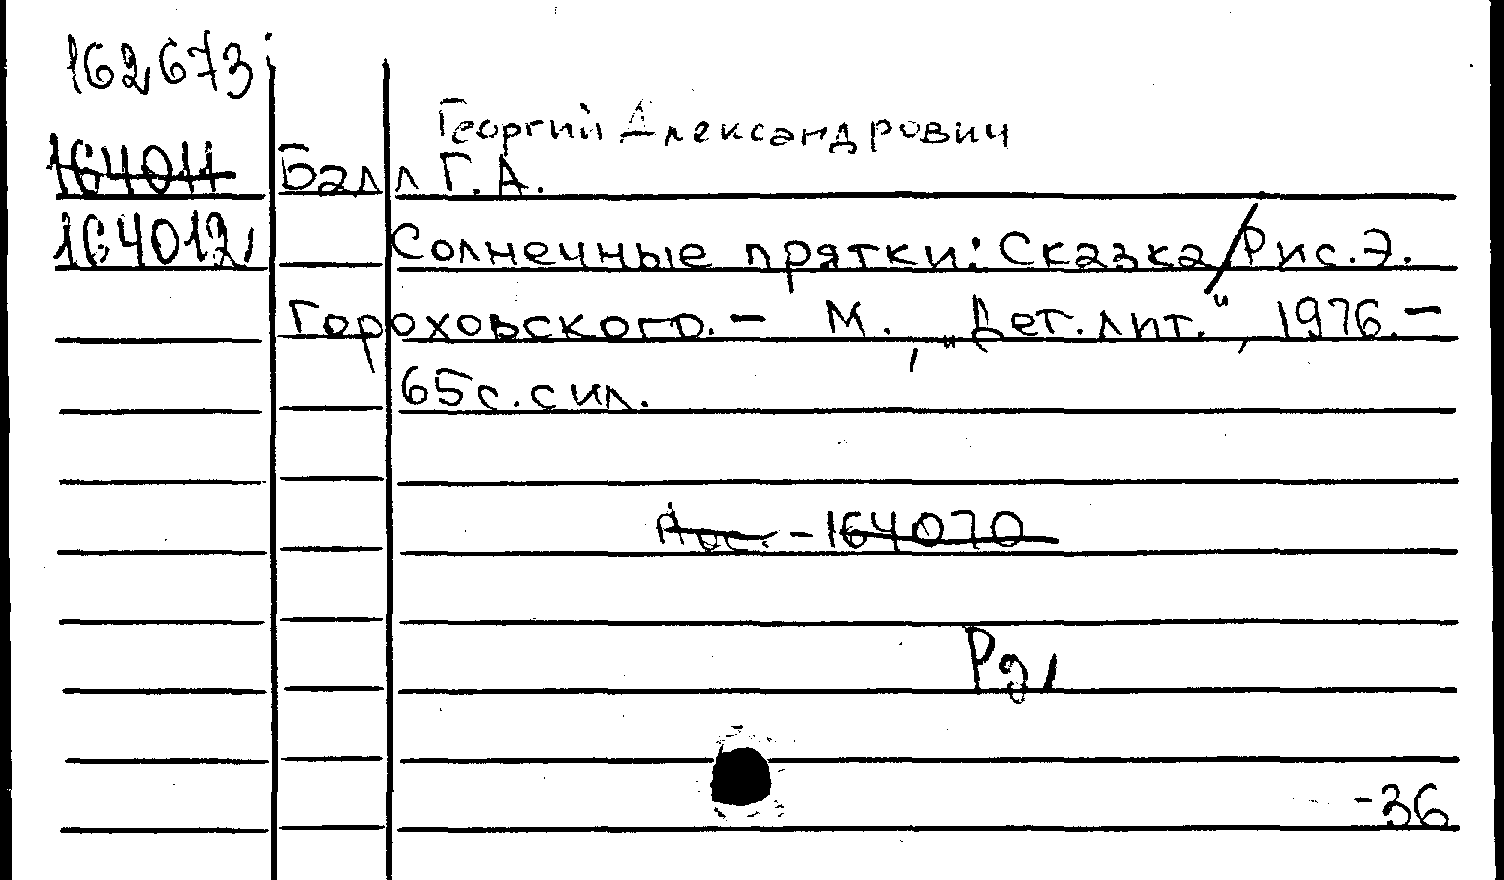 162673
Георгий Александрович
164011 Балл Г.А.
164012, Солнечные прятки: Сказка/Рис.Э.
Гороховского. - М., „Дет.лит.", 1976.-
65с.с ил.
-164070
-36